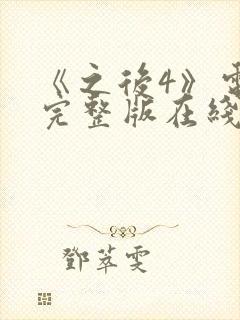 《之後4》電
完整版在綫
鄧萃雯